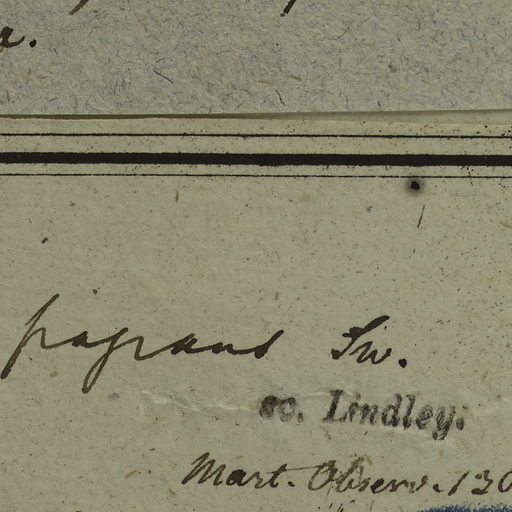 a.
fragrans Sw.
sc. Lindley.
Mart. Observ. 130